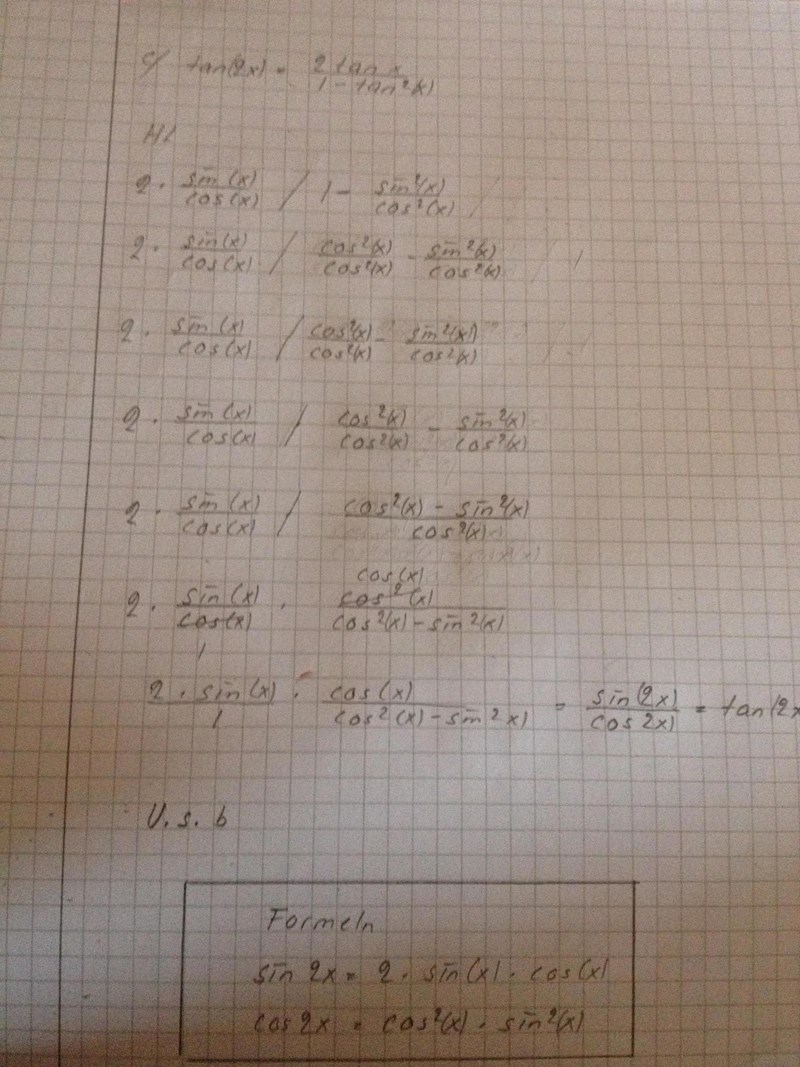 c/ tan(2x) = 2 tan x / 1 - tan²(x)
HL
2 · sin(x)/cos(x) / 1 - sin²(x)/cos²(x)
2 · sin(x)/cos(x) / cos²(x)/cos²(x) - sin²(x)/cos²(x)
2 · sin(x)/cos(x) / cos²(x)/cos²(x) - sin²(x)/cos²(x)
2 · sin(x)/cos(x) / cos²(x)/cos²(x) - sin²(x)/cos²(x)
2 · sin(x)/cos(x) / cos²(x) - sin²(x)/cos²(x)
cos(x)
2 · sin(x)/cos(x) · cos²(x)/cos²(x) - sin²(x)
1
2 · sin(x)/1 · cos(x)/cos²(x) - sin²x) = sin(2x)/cos2x) = tan(2x
V.s.b
Formeln
sin 2x = 2 · sin(x) · cos(x)
cos 2x = cos²(x) - sin²(x)